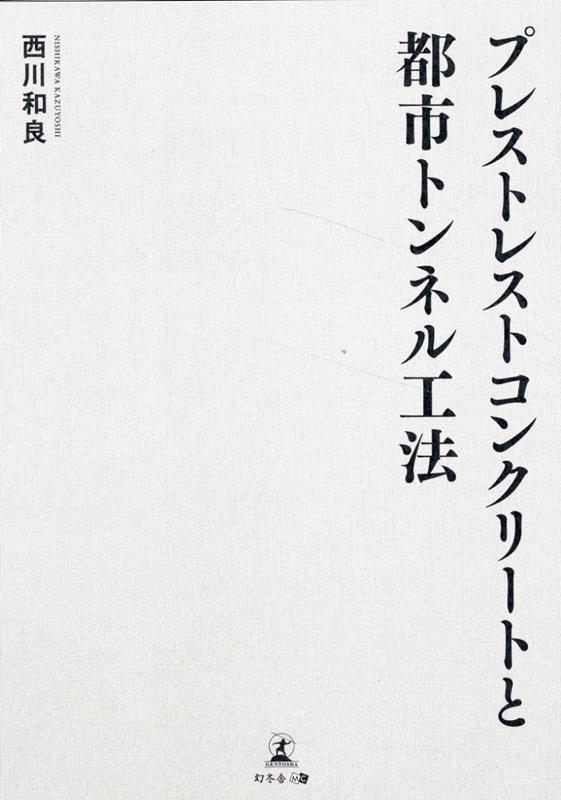 プレストレストコンクリートと
都市トンネル工法
西川和良
NISHIKAWA KAZUYOSHI
GENTOSHA
幻冬舎 MC